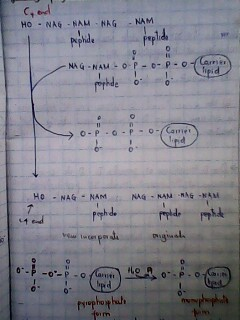 C4 end
HO - NAG - NAM - NAG - NAM
peptide peptide
O O
NAG - NAM - O - P - O - P - O - Carrier lipid
peptide O- O-
O O
O - P - O - P - O - Carrier lipid
O- O-
HO - NAG - NAM NAG - NAM - NAG - NAM
peptide peptide peptide
C4 end
new incorporate originate
O O
O- P - O - P - O - Carrier lipid H2O O- P - O - Carrier lipid
O- O- O-
pyrophosphate monophosphate
form form